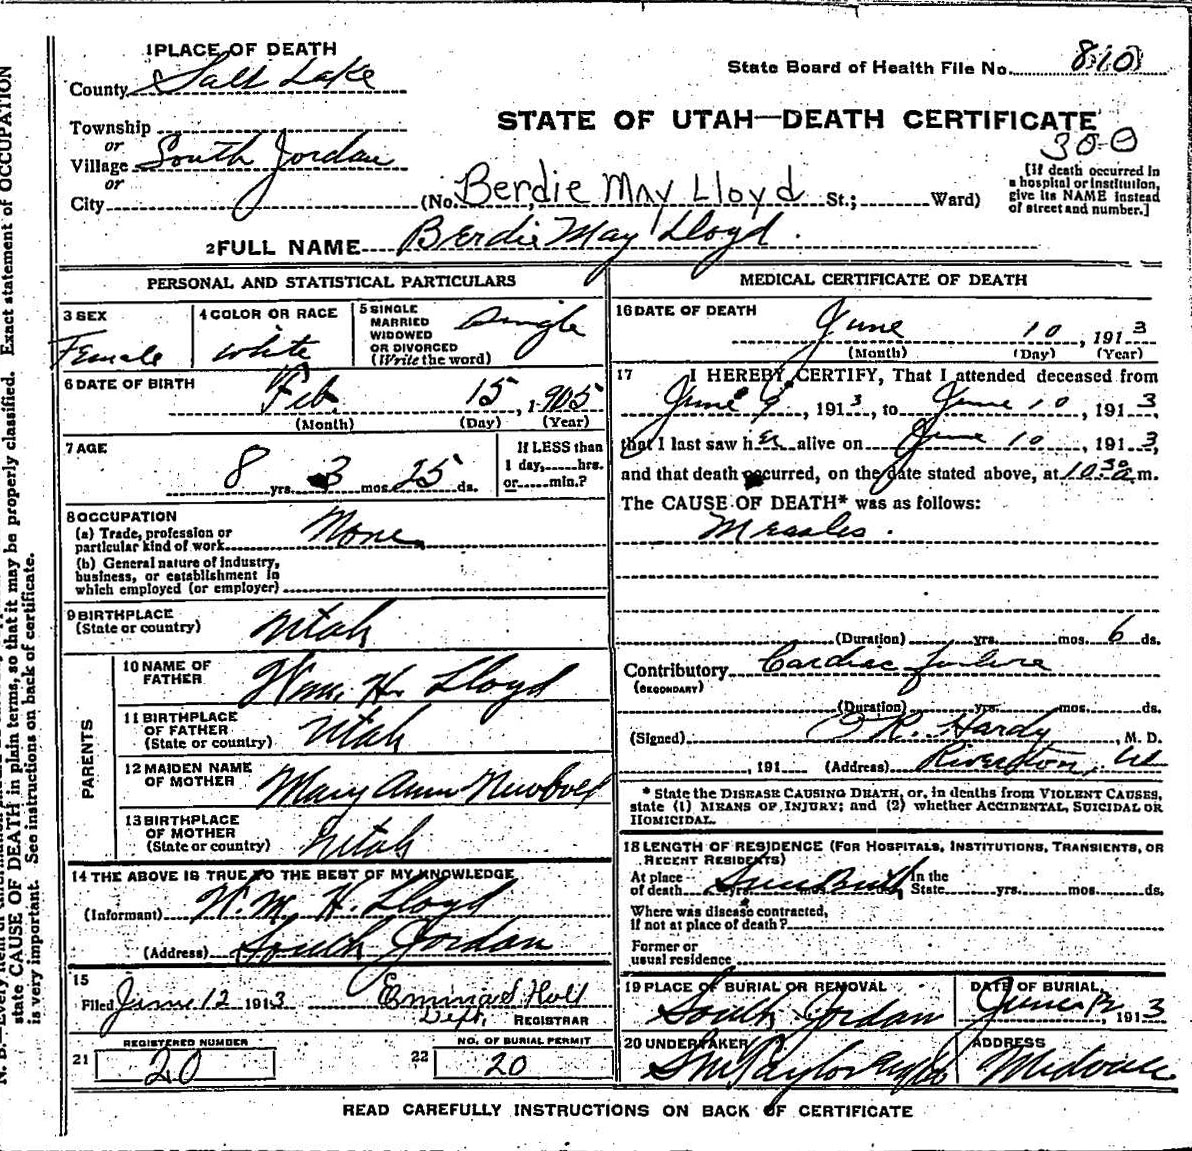 1 PLACE OF DEATH
County Salt Lake
State Board of Health File No. 810
STATE OF UTAH—DEATH CERTIFICATE
300
Township
or
Village South Jordan
or
City (No. Berdie May Lloyd St.; Ward)
[If death occurred in
a hospital or institution,
give its NAME instead
of street and number.]
2 FULL NAME Berdie May Lloyd.
PERSONAL AND STATISTICAL PARTICULARS
3 SEX
Female
4 COLOR OR RACE
White
5 SINGLE
MARRIED
WIDOWED
OR DIVORCED
(Write the word)
Single
6 DATE OF BIRTH
Feb. 15, 1905
(Month) (Day) (Year)
7 AGE
8 yrs. 3 mos. 25 ds.
If LESS than
1 day,......hrs.
or......min.?
8 OCCUPATION
(a) Trade, profession or
particular kind of work None
(b) General nature of industry,
business, or establishment in
which employed (or employer)
9 BIRTHPLACE
(State or country) Utah
PARENTS
10 NAME OF
FATHER Wm. H. Lloyd
11 BIRTHPLACE
OF FATHER
(State or country) Utah
12 MAIDEN NAME
OF MOTHER Mary Ann Newbold
13 BIRTHPLACE
OF MOTHER
(State or country) Utah
14 THE ABOVE IS TRUE TO THE BEST OF MY KNOWLEDGE
(Informant) W. M. H. Lloyd
(Address) South Jordan
15
Filed June 12 1913 Holt
Dept. REGISTRAR
21
REGISTERED NUMBER
20
22
NO. OF BURIAL PERMIT
20
MEDICAL CERTIFICATE OF DEATH
16 DATE OF DEATH
June 10, 1913
(Month) (Day) (Year)
17 I HEREBY CERTIFY, That I attended deceased from
June 9, 1913, to June 10, 1913,
that I last saw her alive on June 10, 1913,
and that death occurred, on the date stated above, at 10:30 a.m.
The CAUSE OF DEATH* was as follows:
Measles.
(Duration) yrs. mos. 6 ds.
Contributory Cardiac failure
(SECONDARY)
(Duration) yrs. mos. ds.
(Signed) R. Hardy, M. D.
, 191 (Address) Riverton, Ut
* State the DISEASE CAUSING DEATH, or, in deaths from VIOLENT CAUSES,
state (1) MEANS OF INJURY; and (2) whether ACCIDENTAL, SUICIDAL OR
HOMICIDAL.
18 LENGTH OF RESIDENCE (FOR HOSPITALS, INSTITUTIONS, TRANSIENTS, OR
RECENT RESIDENTS)
At place
of death Since Birth yrs. mos. ds. In the
State yrs. mos. ds.
Where was disease contracted,
if not at place of death?
Former or
usual residence
19 PLACE OF BURIAL OR REMOVAL
South Jordan
DATE OF BURIAL
June 12, 1913
20 UNDERTAKER
ADDRESS
Midvale
READ CAREFULLY INSTRUCTIONS ON BACK OF CERTIFICATE
state CAUSE OF DEATH in plain terms, so that it may be properly classified. Exact statement of OCCUPATION
is very important. See instructions on back of certificate.